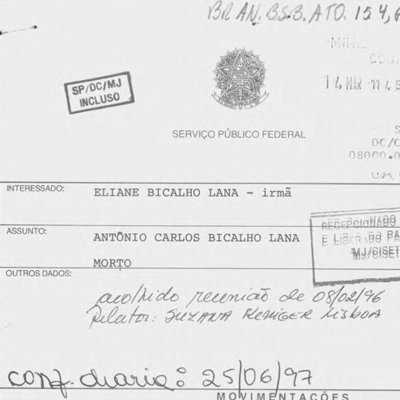 BR AN, BSB. ATO. 154,
SP/DC/MJ
INCLUSO
SERVIÇO PÚBLICO FEDERAL
08000.0
INTERESSADO:
ELIANE BICALHO LANA - irmã
ASSUNTO:
ANTÔNIO CARLOS BICALHO LANA
MORTO
RECEPCIONADO
MJ/CISET
OUTROS DADOS:
acolhido reunião de 08/02/96
Relator: SUZANA KENIGER LISBOA
conf. diário: 25/06/97
MOVIMENTAÇÕES